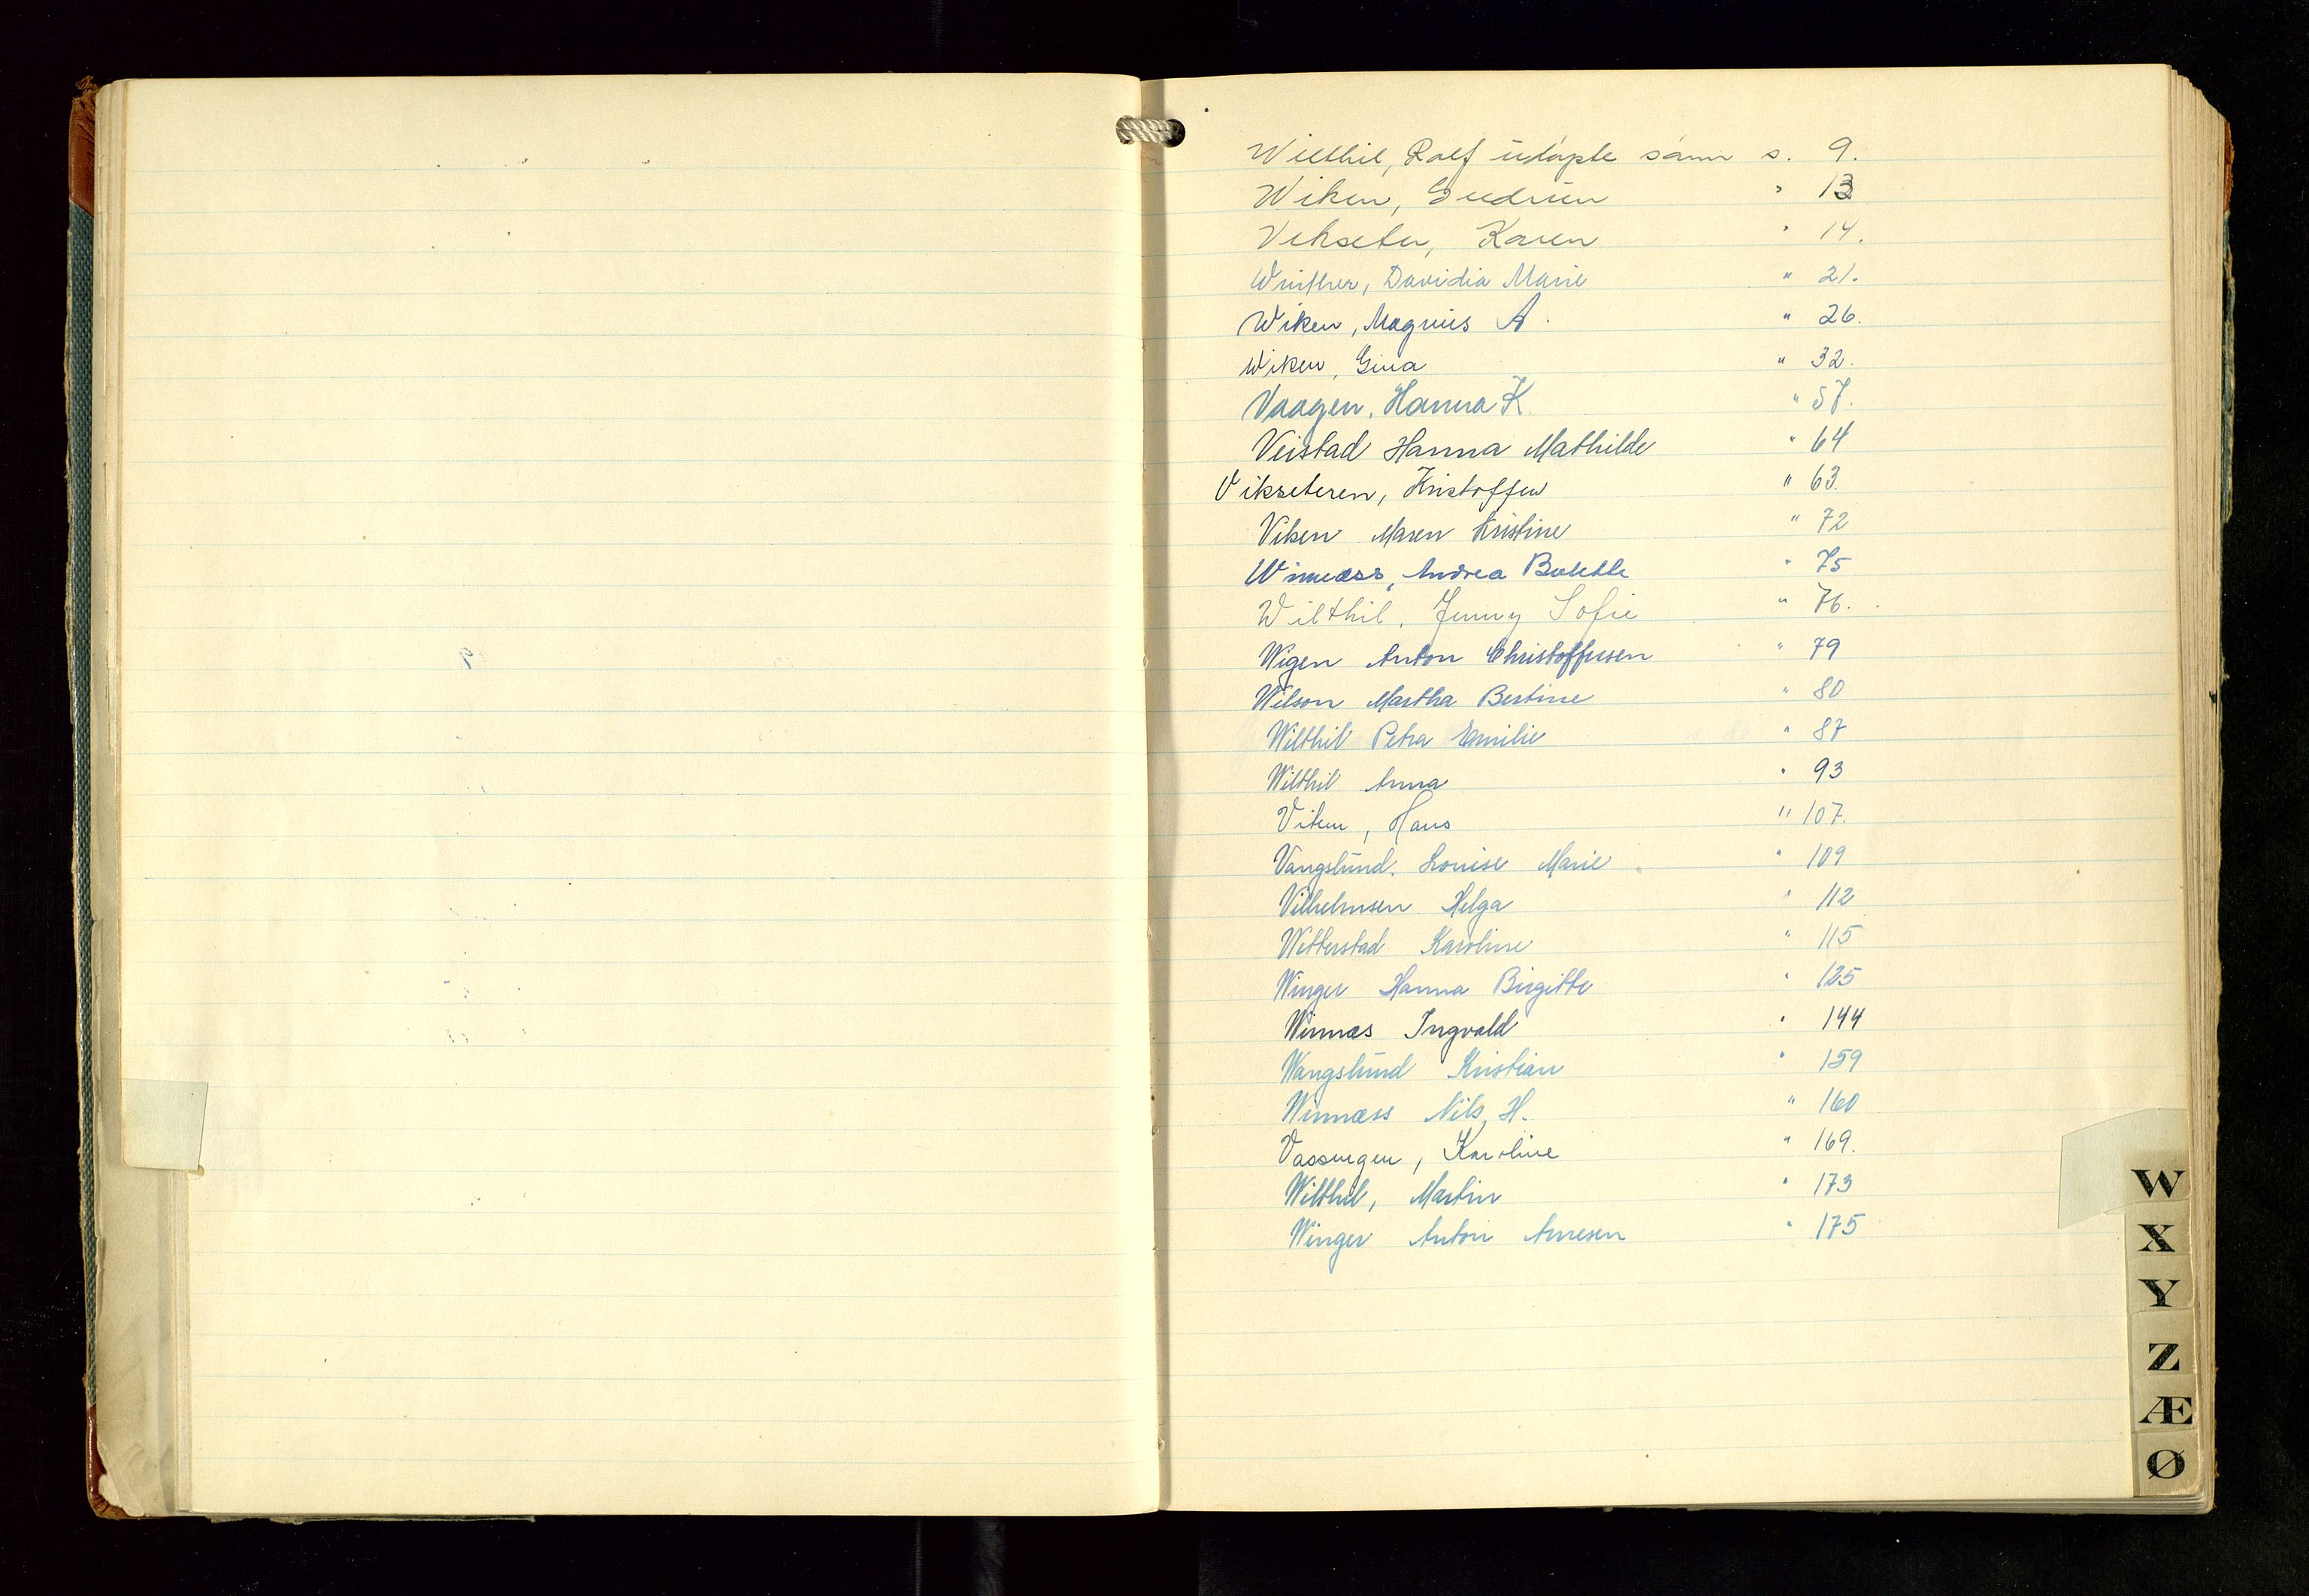 Wilthil, Rolf udøpte sønn s. 9.
Wiken, Gudrun " 13
Vekseter, Karen " 14.
Winther, Davidia Marie " 21.
Wiken, Magnus A. " 26.
Wiken, Gina " 32.
Vaagen, Hanna K. " 57.
Veistad Hanna Mathilde " 64
Vikseteren, Kristoffer " 63.
Viken Maren Kristine " 72
Winnæss, Andrea Bolette " 75
Wilthil, Jenny Sofie " 76.
Wigen Anton Christoffersen " 79
Wilson Martha Bertine " 80
Wilthil Petra Emilie " 87
Wilthil Anna " 93
Viken, Hans " 107.
Vangslund. Louise Marie " 109
Vilhelmsen Helga " 112
Wetterstad Karoline " 115
Winger Hanna Birgitte " 125
Winnæs Ingvald " 144
Wangslund Kristian " 159
Winnæss Nils H. " 160
Vassengen, Karoline " 169.
Wilthil, Martin " 173
Winger Anton Arnesen " 175
W
X
Y
Z
Æ
Ø